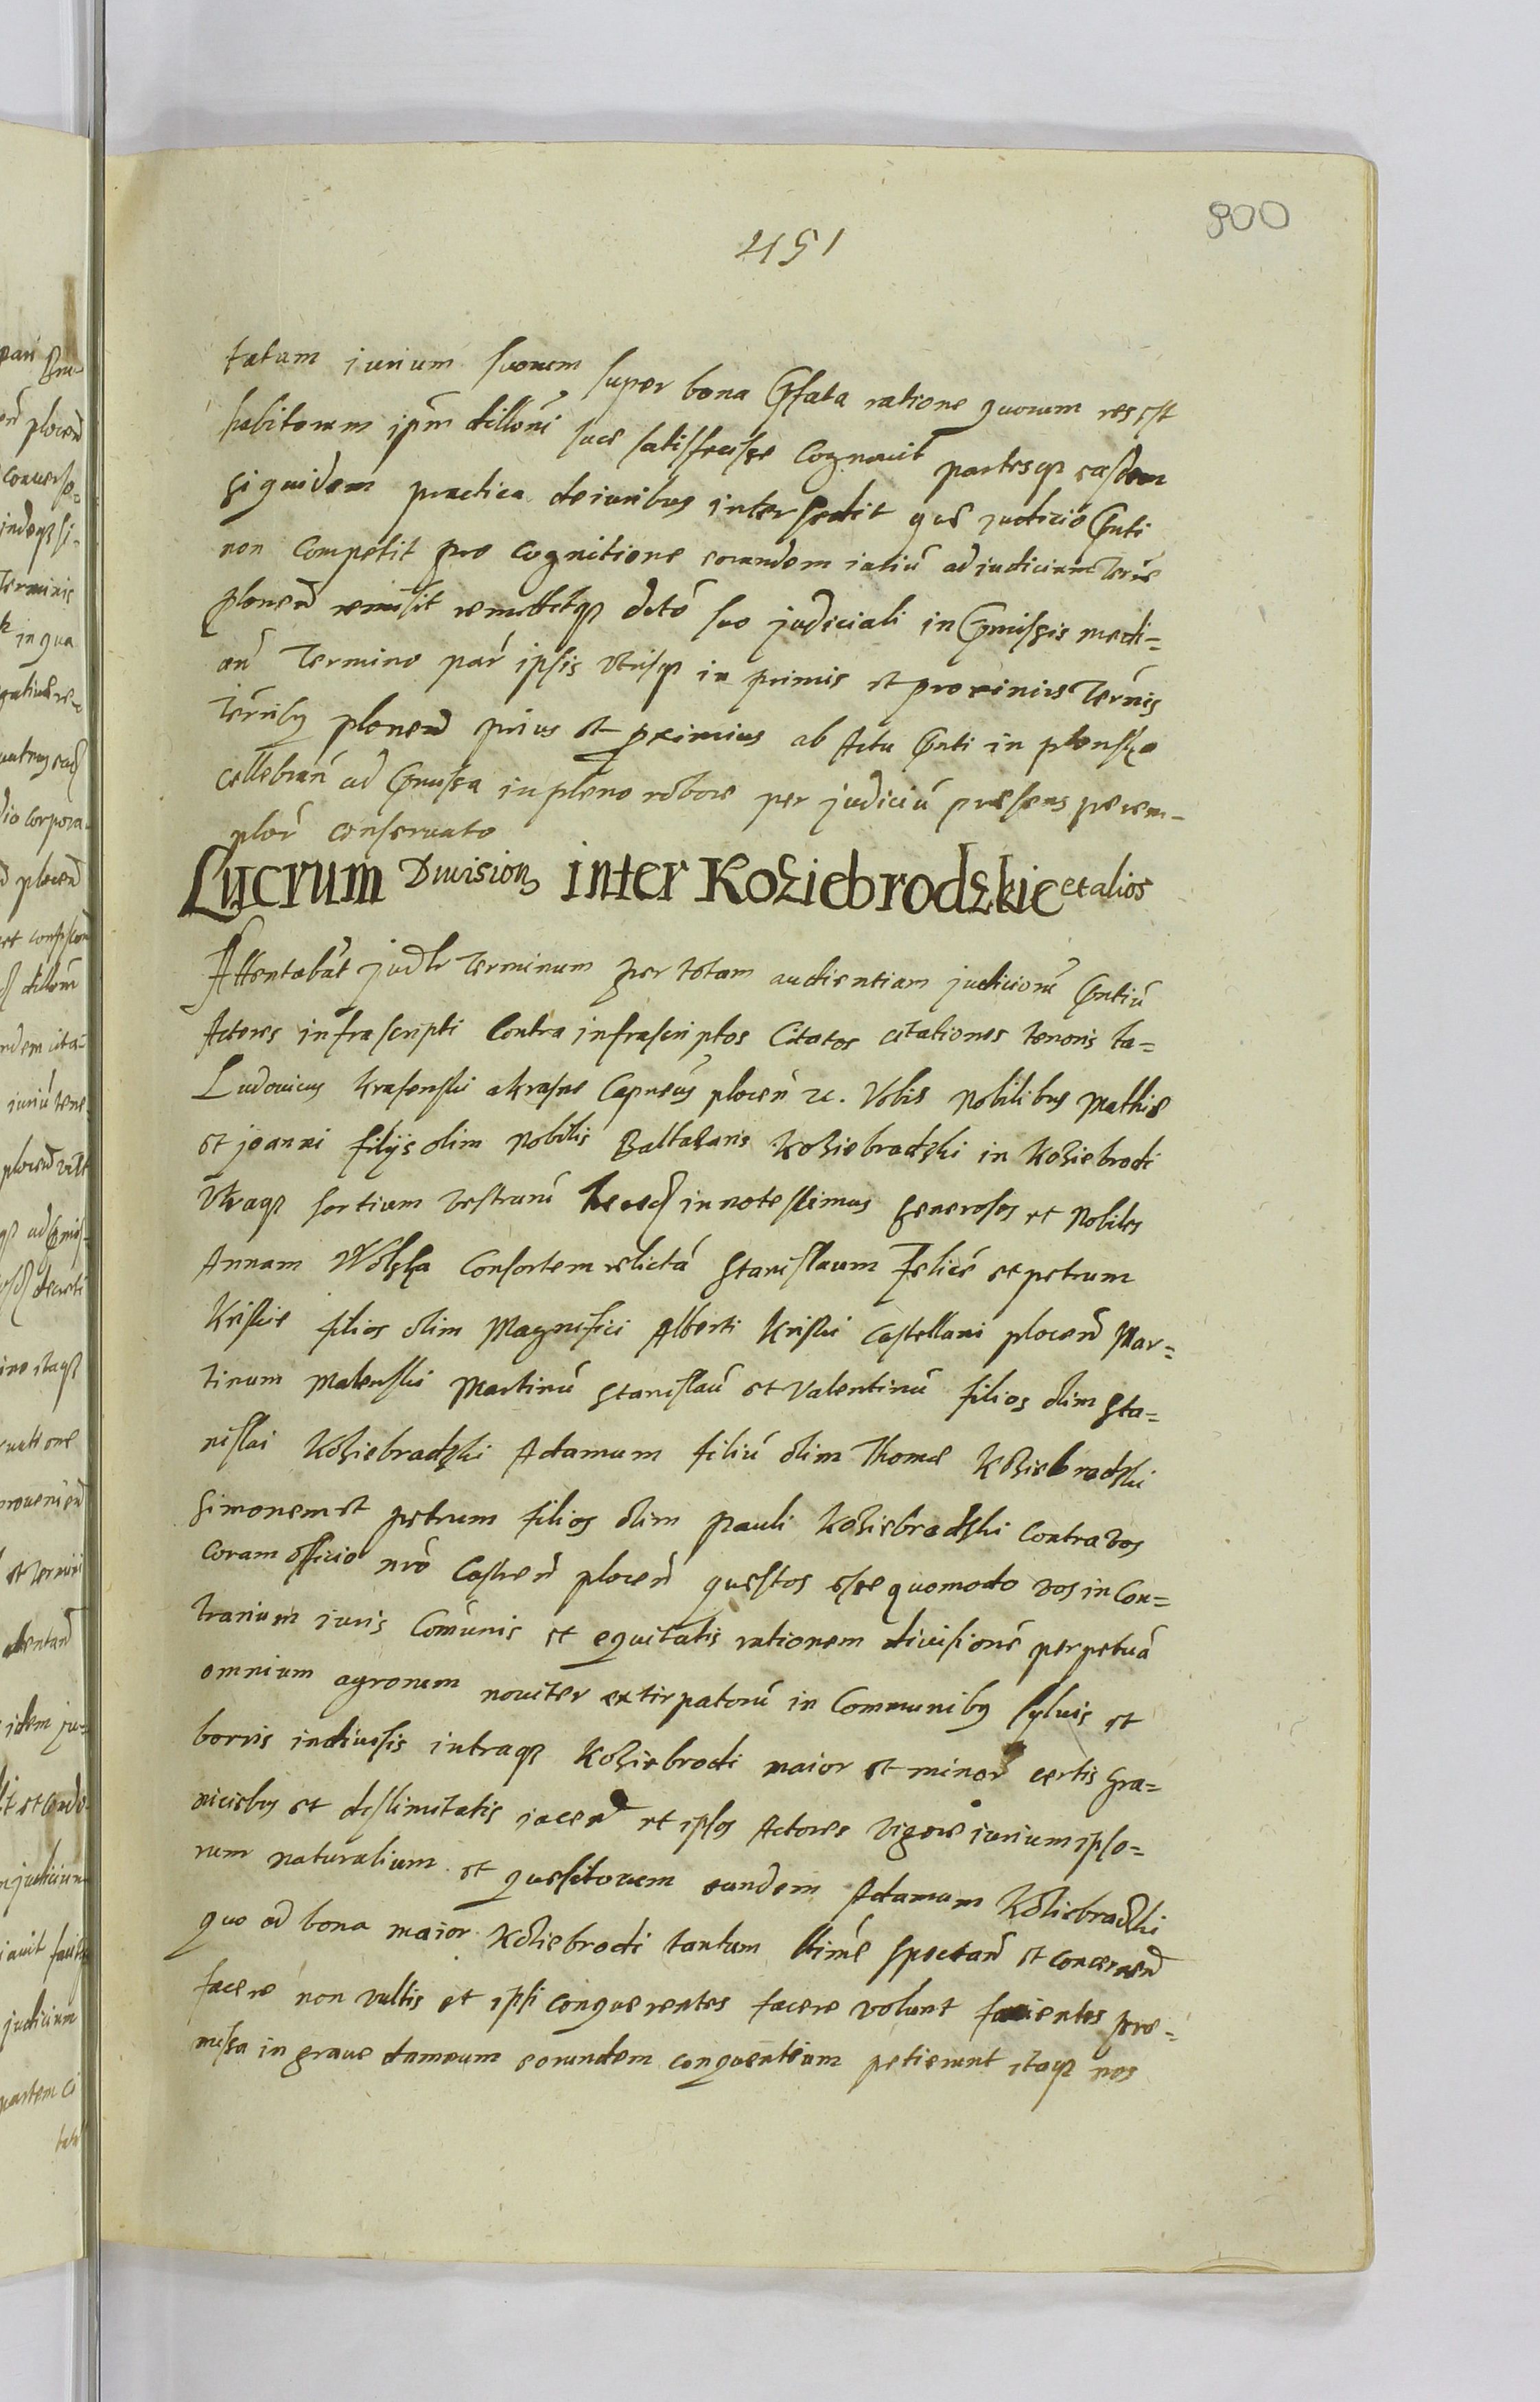 800
451
tatam iurium suorum super bona Pfata ratione quorum res est
habitorum ipm dillom sue satisfecisse Cognovit partesq easdem
siquidem practica deiuribus intercedit que judicio Pnti
non Competit pro Cognitione eorundem iuriu ad iudicium Terre
plonen remisit remittitq dcto suo judiciali in Pmissis medi-
an Termino par ipsis utrisq in primis et proximis Termis
Terrihs plonen prius et proximius ab Actu Pnti in plonsko
cellebran ad Pmissa in pleno robore per judiciu presens perem-
ptor conservato
Lucrum Divisionis inter Koziebrodzkie et alios
Attentabat judlr Terminum per totam audientiam judicioru Pntiu
Actores infrascripti Contra infrascriptos Citatos citationes tenoris ta-
Ludovicus Krasenski akrasne Capneus plocen zc. Vobis Nobilibus Mathie
et joanni filijs olim Nobilis Baltazaris Koziebrodzki in Koziebrodi
Utraq sortium vestraru hered innotescimus Generosos et Nobiles
Annam Wolska Consortem relicta Stanislaum Felice et petrum
Kriskie filios olim Magnifici Alberti Kriski Castellani plocen Mar-
tinum Malenski Martinu Stanislau et Valentinu filios olim Sta-
nislai Koziebradzki Adamum filiu olim Thome Koziebradzki
Simonem et petrum filios olim pauli Koziebradzki Contra vos
Coram officio nro Castren plocen questos esse quomodo vos in Con-
trarium iuris Comunis et equitatis rationem divisione perpetua
omnium agrorum noviter extirpatoru in Communibus sylvis et
borris indivisis intraq Koziebrodi maior et minor certis Gra-
niciebus et deslimitatis jacen et ipsos Actores vigore iurium ipso-
rum naturalium et quesitorum eundem Adamum Koziebradzki
quo ad bona maior Koziebrodi tantum ltime spectan et concernen
facere non vultis et ipsi conquerentes facere volunt facientes pre-
missa in grave damnum eorundem conquerentium petierunt itaq nos